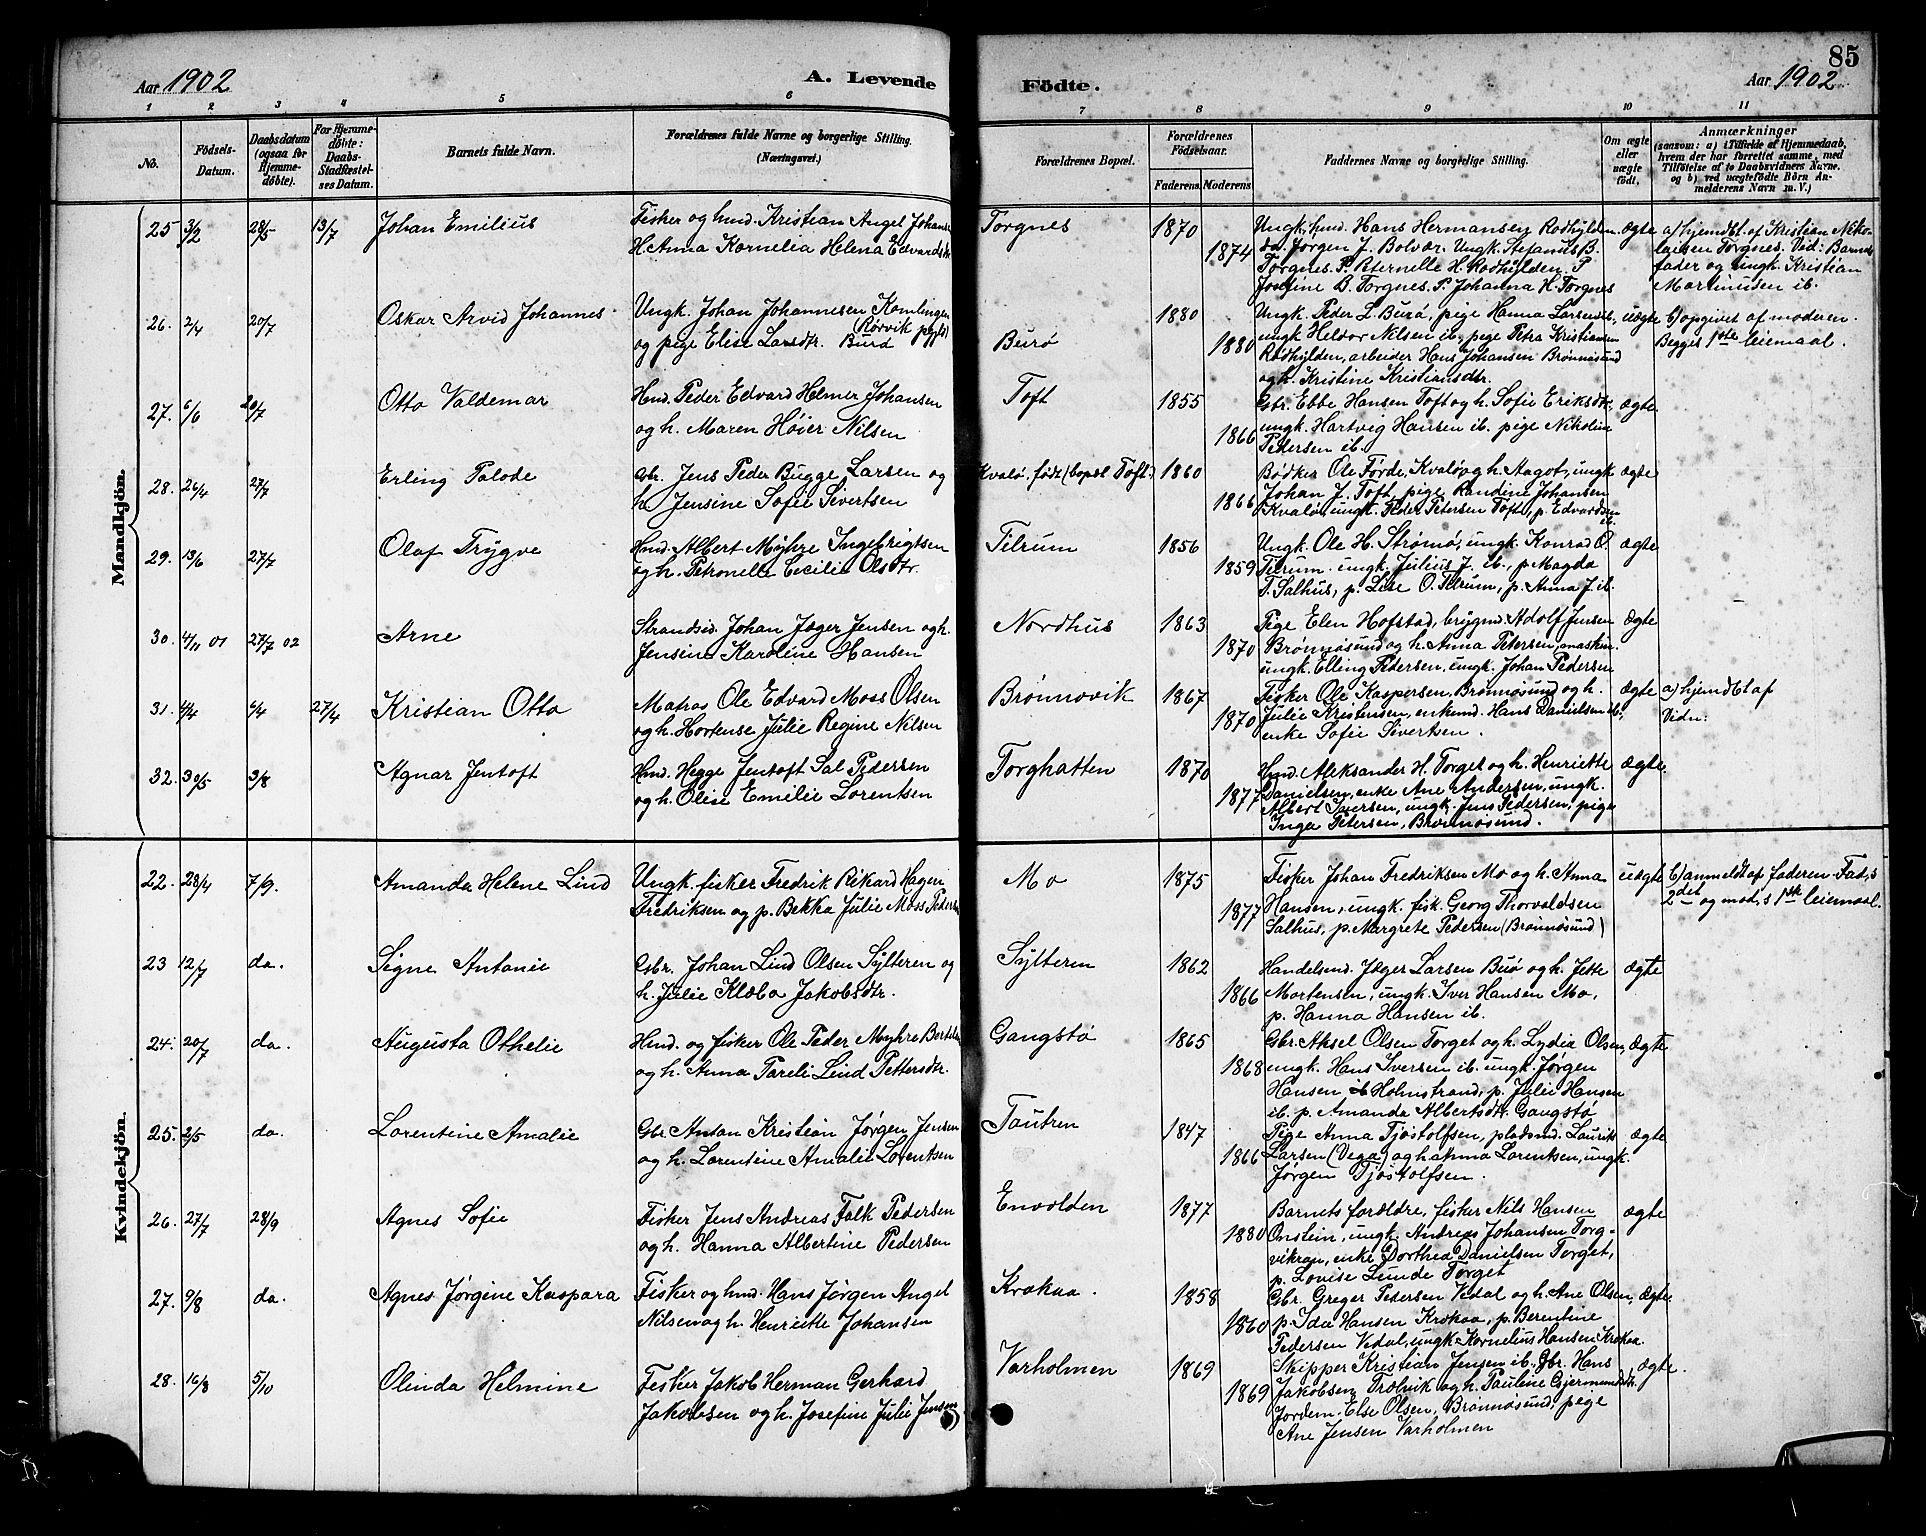 85
Aar 1902
A. Levende
Födte.
Aar 1902
1 2 3 4 5 6 7 8 9 10 11
No.
Födsels-
Datum.
Daabsdatum
(ogsaa for
Hjemme-
døbte).
For Hjemme-
døbte:
Daabs-
Stadfæstel-
ses Datum.
Barnets fulde Navn.
Forældrenes fulde Navne og borgerlige Stilling.
(Næringsvei.)
Forældrenes Bopæl.
Forældrenes
Födselsaar.
Faderens. Moderens.
Faddernes Navne og borgerlige Stilling.
Om ægte
eller
uægte
født.
Anmærkninger
(saasom: a) i Tilfælde af Hjemmedaab,
hvem der har forrettet samme, med
Tilføielse af to Daabsvidners Navne,
og b) ved uægtefödte Börn An-
melderens Navn m. V.)
Mandkjön.
25 3/2 28/5 13/7 Johan Emilius
Fisker og hmd. Kristian Angel Johans
H. Anna Kornelia Helena Edvardsdtr
Torgnes 1870 1874
Ungk, hmd. Hans Hermansen Rodhylden
Jørgen J. Bolvær. Ungk. Stefanus B.
Torgnes. P. Peternelle H. Rodhylden. P
Josefine B. Torgnes. P. Johanna H. Torgnes
ægte
a) hjemdbt. af Kristian Niko-
laisen Torgnes. Vid: Barnets
fader og ungk. Kristian
Martinusen ib.
26. 2/4 20/7 Oskar Arvid Johannes
Ungk. Johan Johannesen
(Rørvik pgjld)
og pige Elise Larsdtr. Burø
Burø 1880 1880
Ungk. Peder L. Burø, pige Hanna Larsen ib,
ungk Heldor Nilsen ib, pige Petra Kristiansen
Rodhylden, arbeider Hans Johansen Brønnøsund
og h. Kristine Kristiansdtr.
uægte
b) opgivet af moderen.
Begges 1ste leiemaal.
27. 6/6 20/7 Otto Valdemar
Hmd. Peder Edvard Helmer Johansen
og h. Maren Høier Nilsen
Toft 1855 1866
Gbr. Ebbe Hansen Toft og h. Sofie Eriksdtr,
ungk. Hartvig Hansen ib. pige Nikoline
Pedersen ib.
ægte
28. 26/4 27/7 Erling Palode
Gbr. Jens Peder Bugge Larsen og
h. Jensine Sofie Sivertsen
Kvalø, født (bopæl Toft.) 1860 1866
Bødker Ole Førde, Kvalø og h. Aagot, ungk
Johan J. Toft, pige Randine Johansen
Kvalø, ungk. Peder Petersen Toft, p. Edvardsen
ib.
ægte
29. 13/6 27/7 Olaf Trygve
Hmd. Albert Myhre Ingebrigtsen
og h. Petronelle Cecilie Olsdtr.
Tilrum 1856 1859
Ungk. Ole H. Strømø, ungk. Konrad O.
Tilrum. ungk. Julius J. ib., p. Magda
T. Salhus, p. Lise O. Tilrum, p. Anna J. ib.
ægte
30. 4/11 01 27/7 02 Arne
Strandsid. Johan Jæger Jensen og h.
Jensine Karoline Hansen
Nordhus 1863 1870
Pige Elen Hofstad, brygm. Adolf Jensen
Brønnøsund og h. Anna Petersen, maskin.
ungk. Elling Pedersen, ungk. Johan Pedersen
Ægte
31. 4/4 6/4 27/4 Kristian Otto
Matros Ole Edvard Moss Olsen
og h. Hortense Julie Regine Nilsen
Brønnøvik 1867 1870
Fisker Ole Kaspersen, Brønnøsund og h.
Julie Kristensen, enkemd. Hans Danielsen ib.
enke Sofie Sivertsen.
ægte
a) hjemdbt af
Vidn:
32. 30/5 3/8 Agnar Jentoft
Hmd. Hegge Jentoft Sal Pedersen
og h. Olise Emilie Lorentsen
Torghatten 1870 1877
Hmd. Aleksander H. Torget og h. Henriette
Danielsen, enke Ane Andersen, ungk.
Albert Iversen, ungk. Jens Pedersen, pige
Inga Petersen, Brønnøsund.
ægte.
Kvindekjön.
22. 28/4 7/9. Amanda Helene Lind
Ungk. fisker Fredrik Rikard Hagen
Fredriksen og p. Bekka Julie Moss Peders
Mo 1875 1877
Fisker Johan Fredriksen Mo og h. Anna
Hansen, ungk. fisk. Georg Thorvaldsen
Salhus, p. Margrete Pedersen (Brønnøsund)
uægte
b) anmeldt af faderen. Fad.s
2det og mod.s 1ste leiemaal.
23 12/7 do. Signe Antonie
Gbr. Johan Lind Olsen Sylteren og
h. Julie Klæbo Jakobsdtr.
Sylteren 1862 1866
Handelsmd. Jæger Larsen Buø og h. Jette
Mortensen, ungk. Iver Hansen Mo,
p. Hanna Hansen ib.
ægte
24. 20/7 do. Augusta Othelie
Hmd. og fisker Ole Peder Myhre Bertels
og h. Anna Pareli Lind Pettersdtr.
Gangstø 1865 1868
Gbr. Aksel Olsen Torget og h. Lydia Olsen,
ungk. Hans Iversen ib. ungk. Jørgen
Hansen Holmstrand, p. Julie Hansen
ib. p. Amanda Albertsdtr. Gangstø
ægte
25. 2/5 do. Lorentine Amalie
Gbr. Anton Kristian Jørgen Jensen
og h. Lorentine Amalie Lorentsen
Tautren 1847 1866
Pige Anna Tjøstolfsen, pladsmd. Laurits
Larsen (Vega) og h Anna Lorentsen, ungk.
Jørgen Tjøstolfsen.
ægte
26. 27/7 28/9 Agnes Sofie
Fisker Jens Andreas Falk Pedersen
og h. Hanna Albertine Pedersen
Envolden 1877 1880
Barnets forældre, fisker Nils Hansen
Onstein, ungk. Andreas Johansen Torg-
vikran, enke Dorthea Danielsen Torget,
p. Lovise Lunde Torget
ægte
27. 9/8 do. Agnes Jørgine Kaspara
Fisker og hmd. Hans Jørgen Angel
Nilsen og h Henriette Johansen
Krokaa. 1858 1860
Gbr. Greger Pedersen Vedal og h. Ane Olsen,
p. Ida Hansen Krokaa, p. Berentine
Pedersen Vedal, ungk. Kornelius Hansen Krokaa
ægte
28. 16/8 5/10 Olinda Helmine
Fisker Jakob Herman Gerhard
Jakobsen og h. Josefine Julie Jensen
Varholmen 1869 1869
Skipper Kristian Jensen ib. Gbr. Hans
Jakobsen Trolvik og h. Pauline Gjermundsdtr.
Jordem. Else Olsen, Brønnøsund, pige
Ane Jensen Varholmen
ægte.